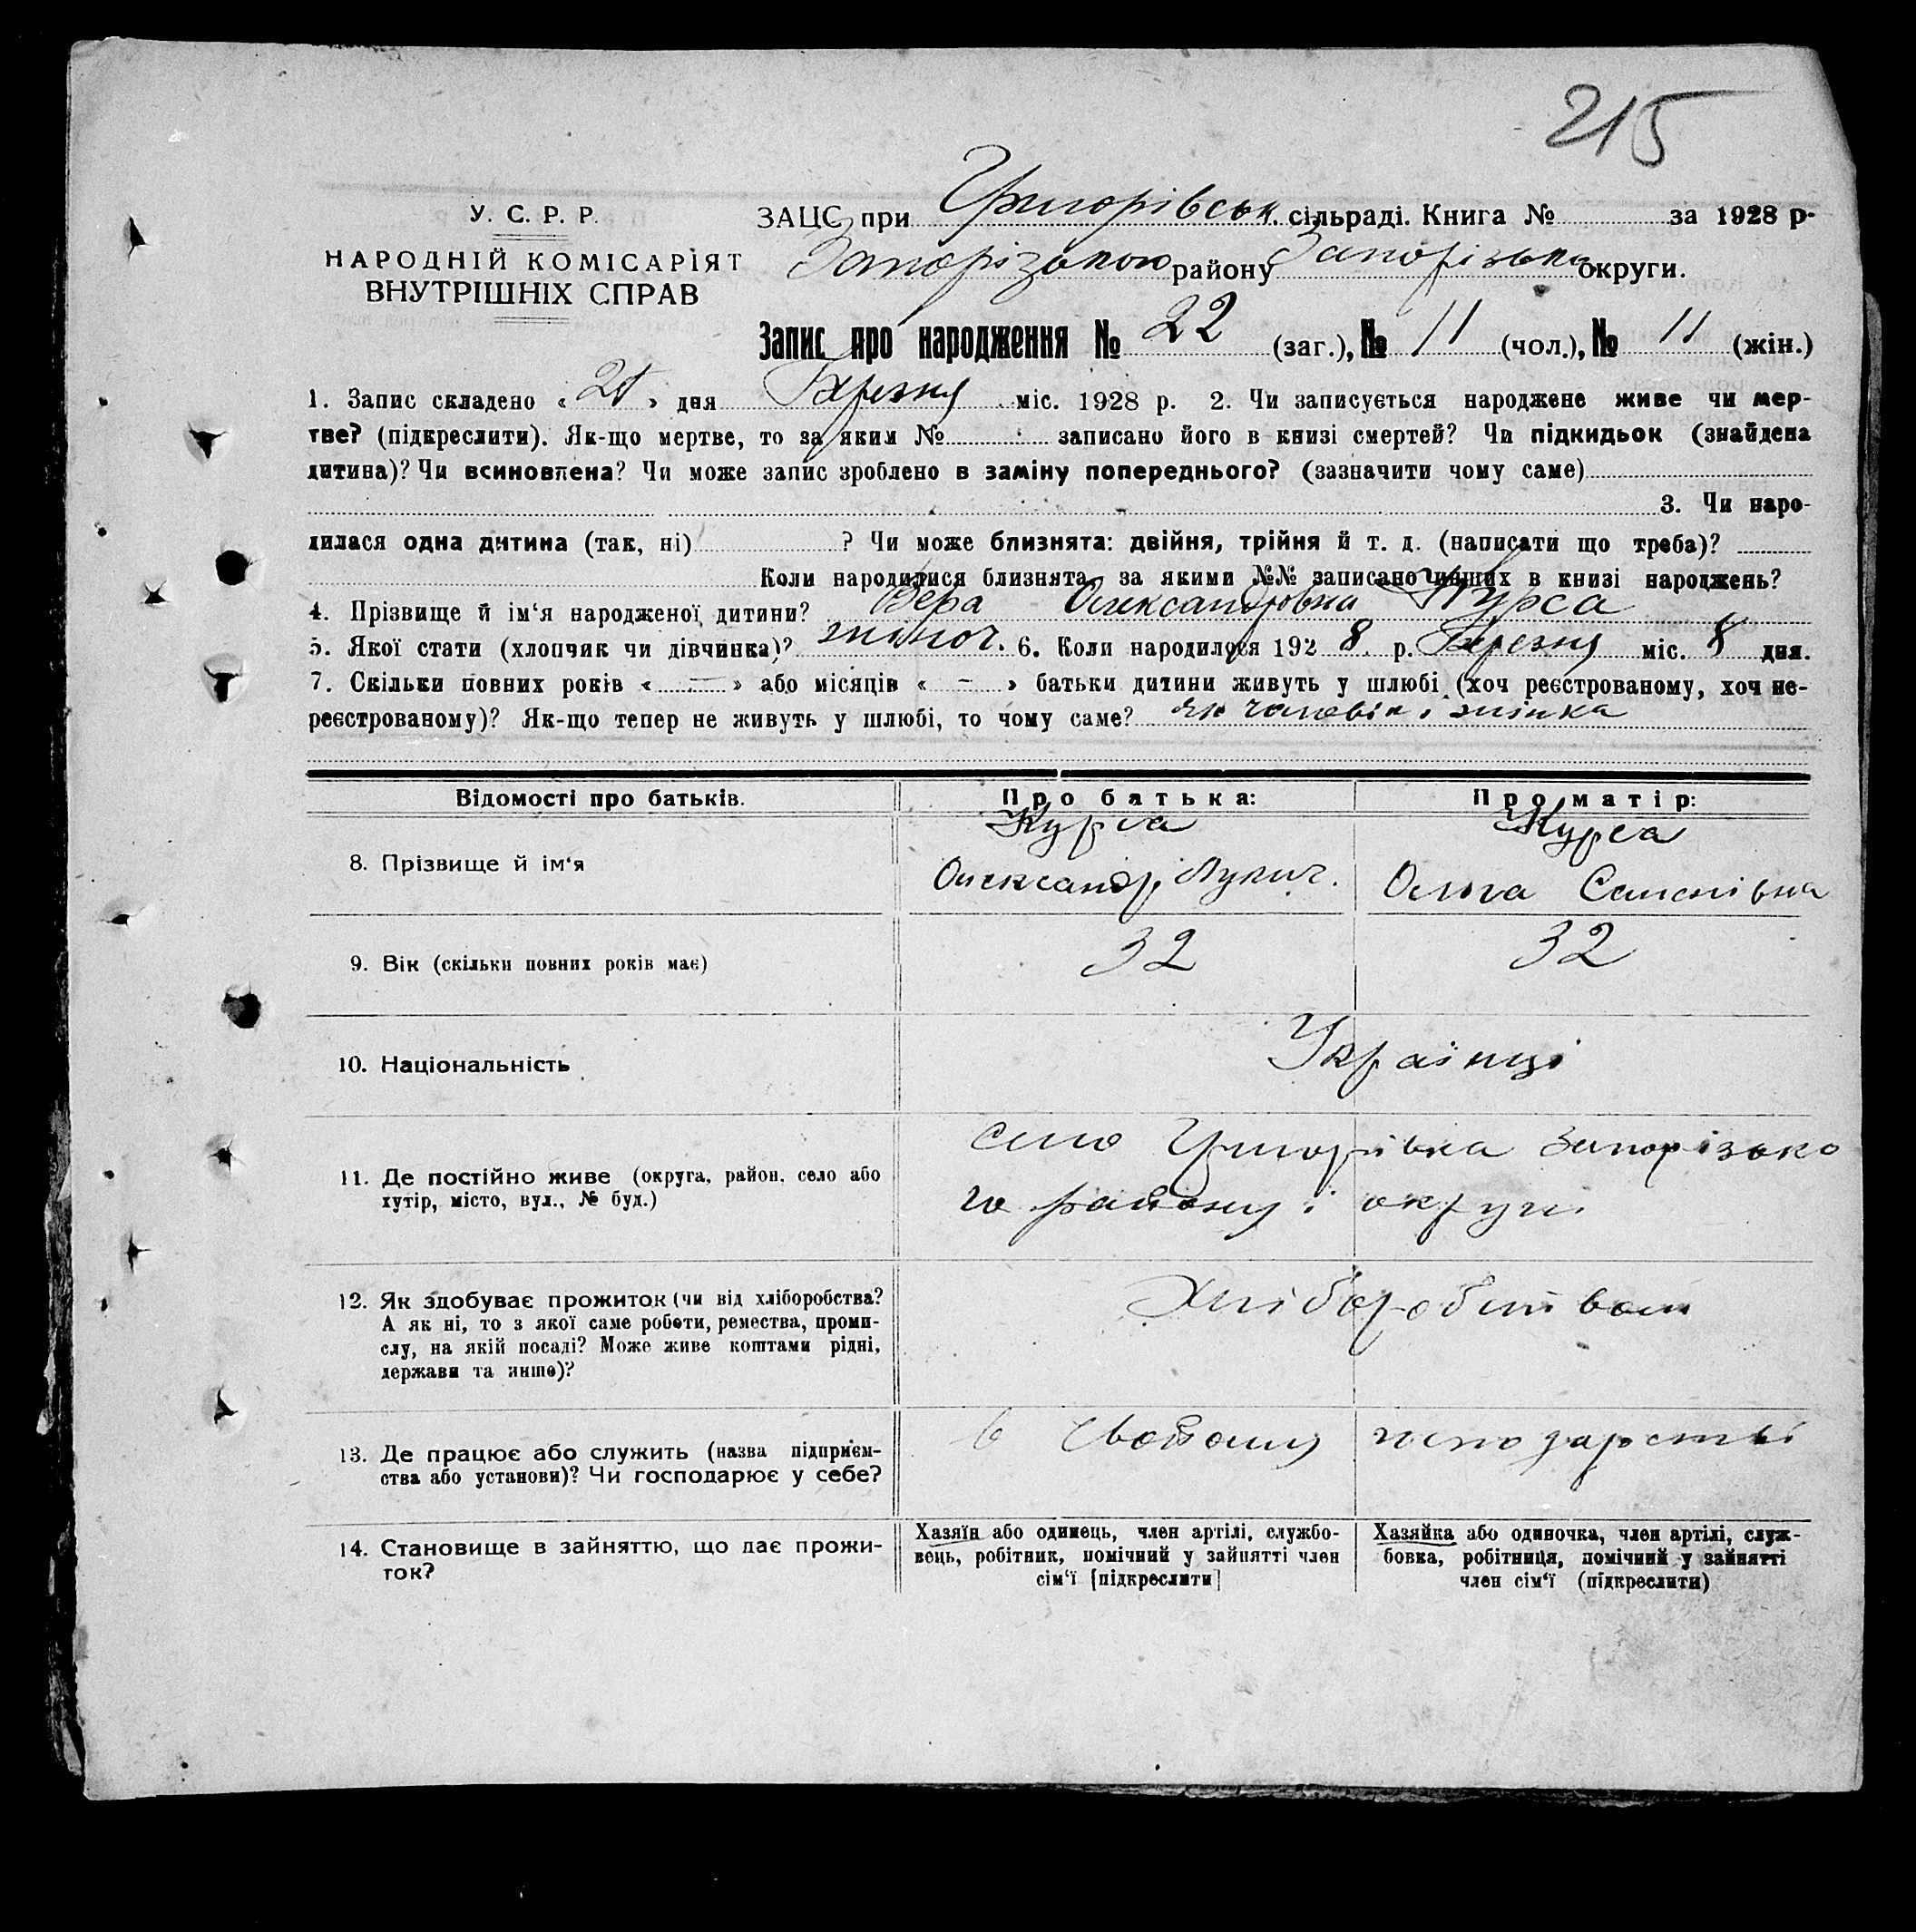 215
У. С. Р. Р.
НАРОДНІЙ КОМІСАРІЯТ
ВНУТРІШНІХ СПРАВ
ЗАЦС при Григорівськ. сільраді. Книга № за 1928 р.
Запорізького району Запорізьки округи.
Запис про народження № 22 (заг.), № 11 (чол.), № 11 (жін.)
1. Запис складено « » дня Березня міс. 1928 р. 2. Чи записується народжене живе чи мер-
тве? (підкреслити). Як-що мертве, то за яким № записано його в книзі смертей? Чи підкидьок (знайдена
дитина)? Чи всиновлена? Чи може запис зроблено в заміну попереднього? (зазначити чому саме)
3. Чи наро-
дилася одна дитина (так, ні) ? Чи може близнята: двійня, трійня й т. д. (написати що треба)?
Коли народилися близнята, за якими №№ записано инших в книзі народжень?
4. Прізвище й ім‘я народженої дитини? Вера Олександровна Курса
5. Якої стати (хлопчик чи дівчинка)? жіноч. 6. Коли народилося 1928 р. Березня міс. 8 дня.
7. Скільки повних років « — » або місяців « - » батьки дитини живуть у шлюбі (хоч реєстрованому, хоч не-
реєстрованому)? Як-що тепер не живуть у шлюбі, то чому саме? як чоловік і жінка
Відомості про батьків. Про батька: Про матір:
Курса Курса
8. Прізвище й ім‘я Олександр Лукич. Ольга Семенівна
9. Вік (скільки повних років має) 32 32
10. Національність Українці
11. Де постійно живе (округа, район, село або
хутір, місто, вул., № буд.)
село Григорівка Запорізько
го району і округи
12. Як здобуває прожиток (чи від хліборобства?
А як ні, то з якої саме роботи, ремества, проми-
слу, на якій посаді? Може живе коштами рідні,
держави та инше)?
Хліборобством
13. Де працює або служить (назва підприєм-
ства або установи)? Чи господарює у себе?
в свойому господарстві
14. Становище в зайняттю, що дає прожи-
ток?
Хазяїн або одинець, член артілі, службо-
вець, робітник, помічний у зайнятті член
сім‘ї [підкреслити]
Хазяйка або одиночка, член артілі, служ-
бовка, робітниця, помічний у зайнятті
член сім‘ї (підкреслити)